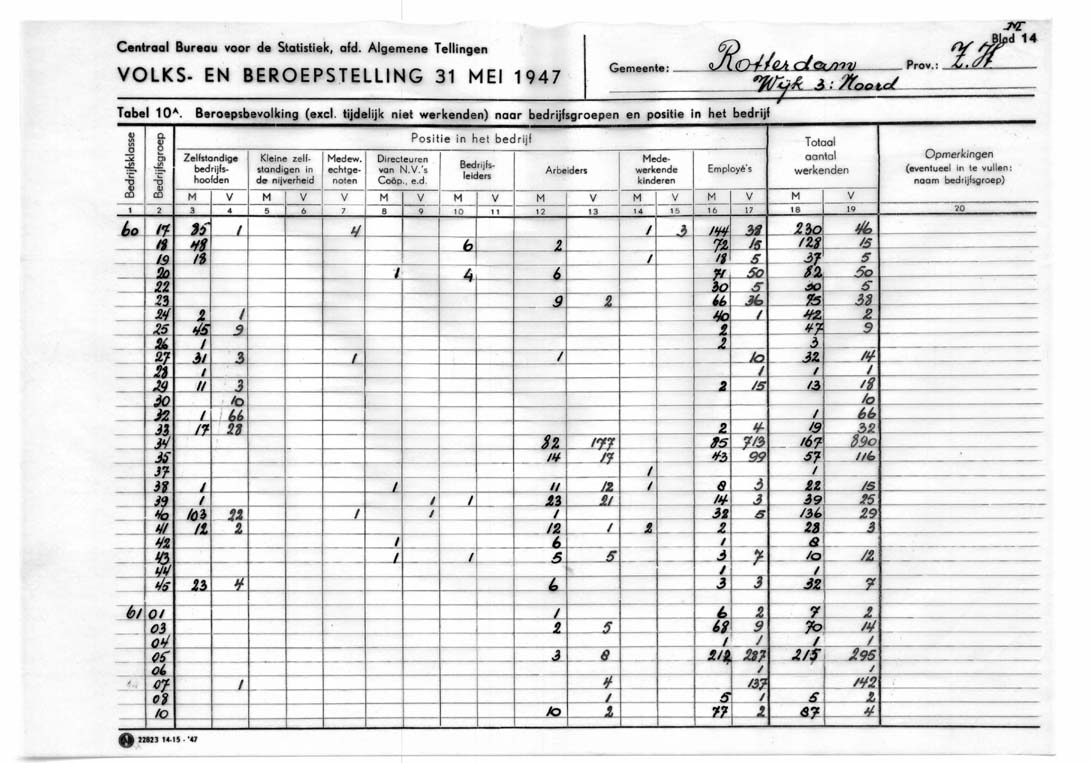 VI
Blad 14
Centraal Bureau voor de Statistiek, afd. Algemene Tellingen
VOLKS- EN BEROEPSTELLING 31 MEI 1947
Gemeente: Rotterdam Prov.: Z.H.
Wijk 3: Noord
Tabel 10A. Beroepsbevolking (excl. tijdelijk niet werkenden) naar bedrijfsgroepen en positie in het bedrijf
Bedrijfsklasse Bedrijfsgroep Positie in het bedrijf Totaal aantal werkenden Opmerkingen (eventueel in te vullen: naam bedrijfsgroep)
Zelfstandige bedrijfs-hoofden Kleine zelf-standigen in de nijverheid Medew. echtge-noten Directeuren van N.V.'s Coöp., e.d. Bedrijfs-leiders Arbeiders Mede-werkende kinderen Employé's
M V M V V M V M V M V M V M V M V
1 2 3 4 5 6 7 8 9 10 11 12 13 14 15 16 17 18 19 20
60 17 85 1 4 1 3 144 38 230 46
18 48 6 2 72 15 128 15
19 18 1 18 5 37 5
20 1 4 6 71 50 82 50
22 30 5 30 5
23 9 2 66 36 75 38
24 2 1 40 1 42 2
25 45 9 2 47 9
26 1 2 3
27 31 3 1 1 10 32 14
28 1 1 1 1
29 11 3 2 15 13 18
30 10 10
32 1 66 1 66
33 17 28 2 4 19 32
34 82 177 85 713 167 890
35 14 17 43 99 57 116
37 1 1
38 1 1 11 12 1 8 3 22 15
39 1 1 1 23 21 14 3 39 25
40 103 22 1 1 1 32 5 136 29
41 12 2 12 1 2 2 28 3
42 1 6 1 8
43 1 1 5 5 3 7 10 12
44 1 1
45 23 4 6 3 3 32 7
61 01 1 6 2 7 2
03 2 5 68 9 70 14
04 1 1 1 1
05 3 8 212 287 215 295
06 1 1
07 1 4 137 142
08 1 5 1 5 2
10 10 2 77 2 87 4
22823 14-15 - '47